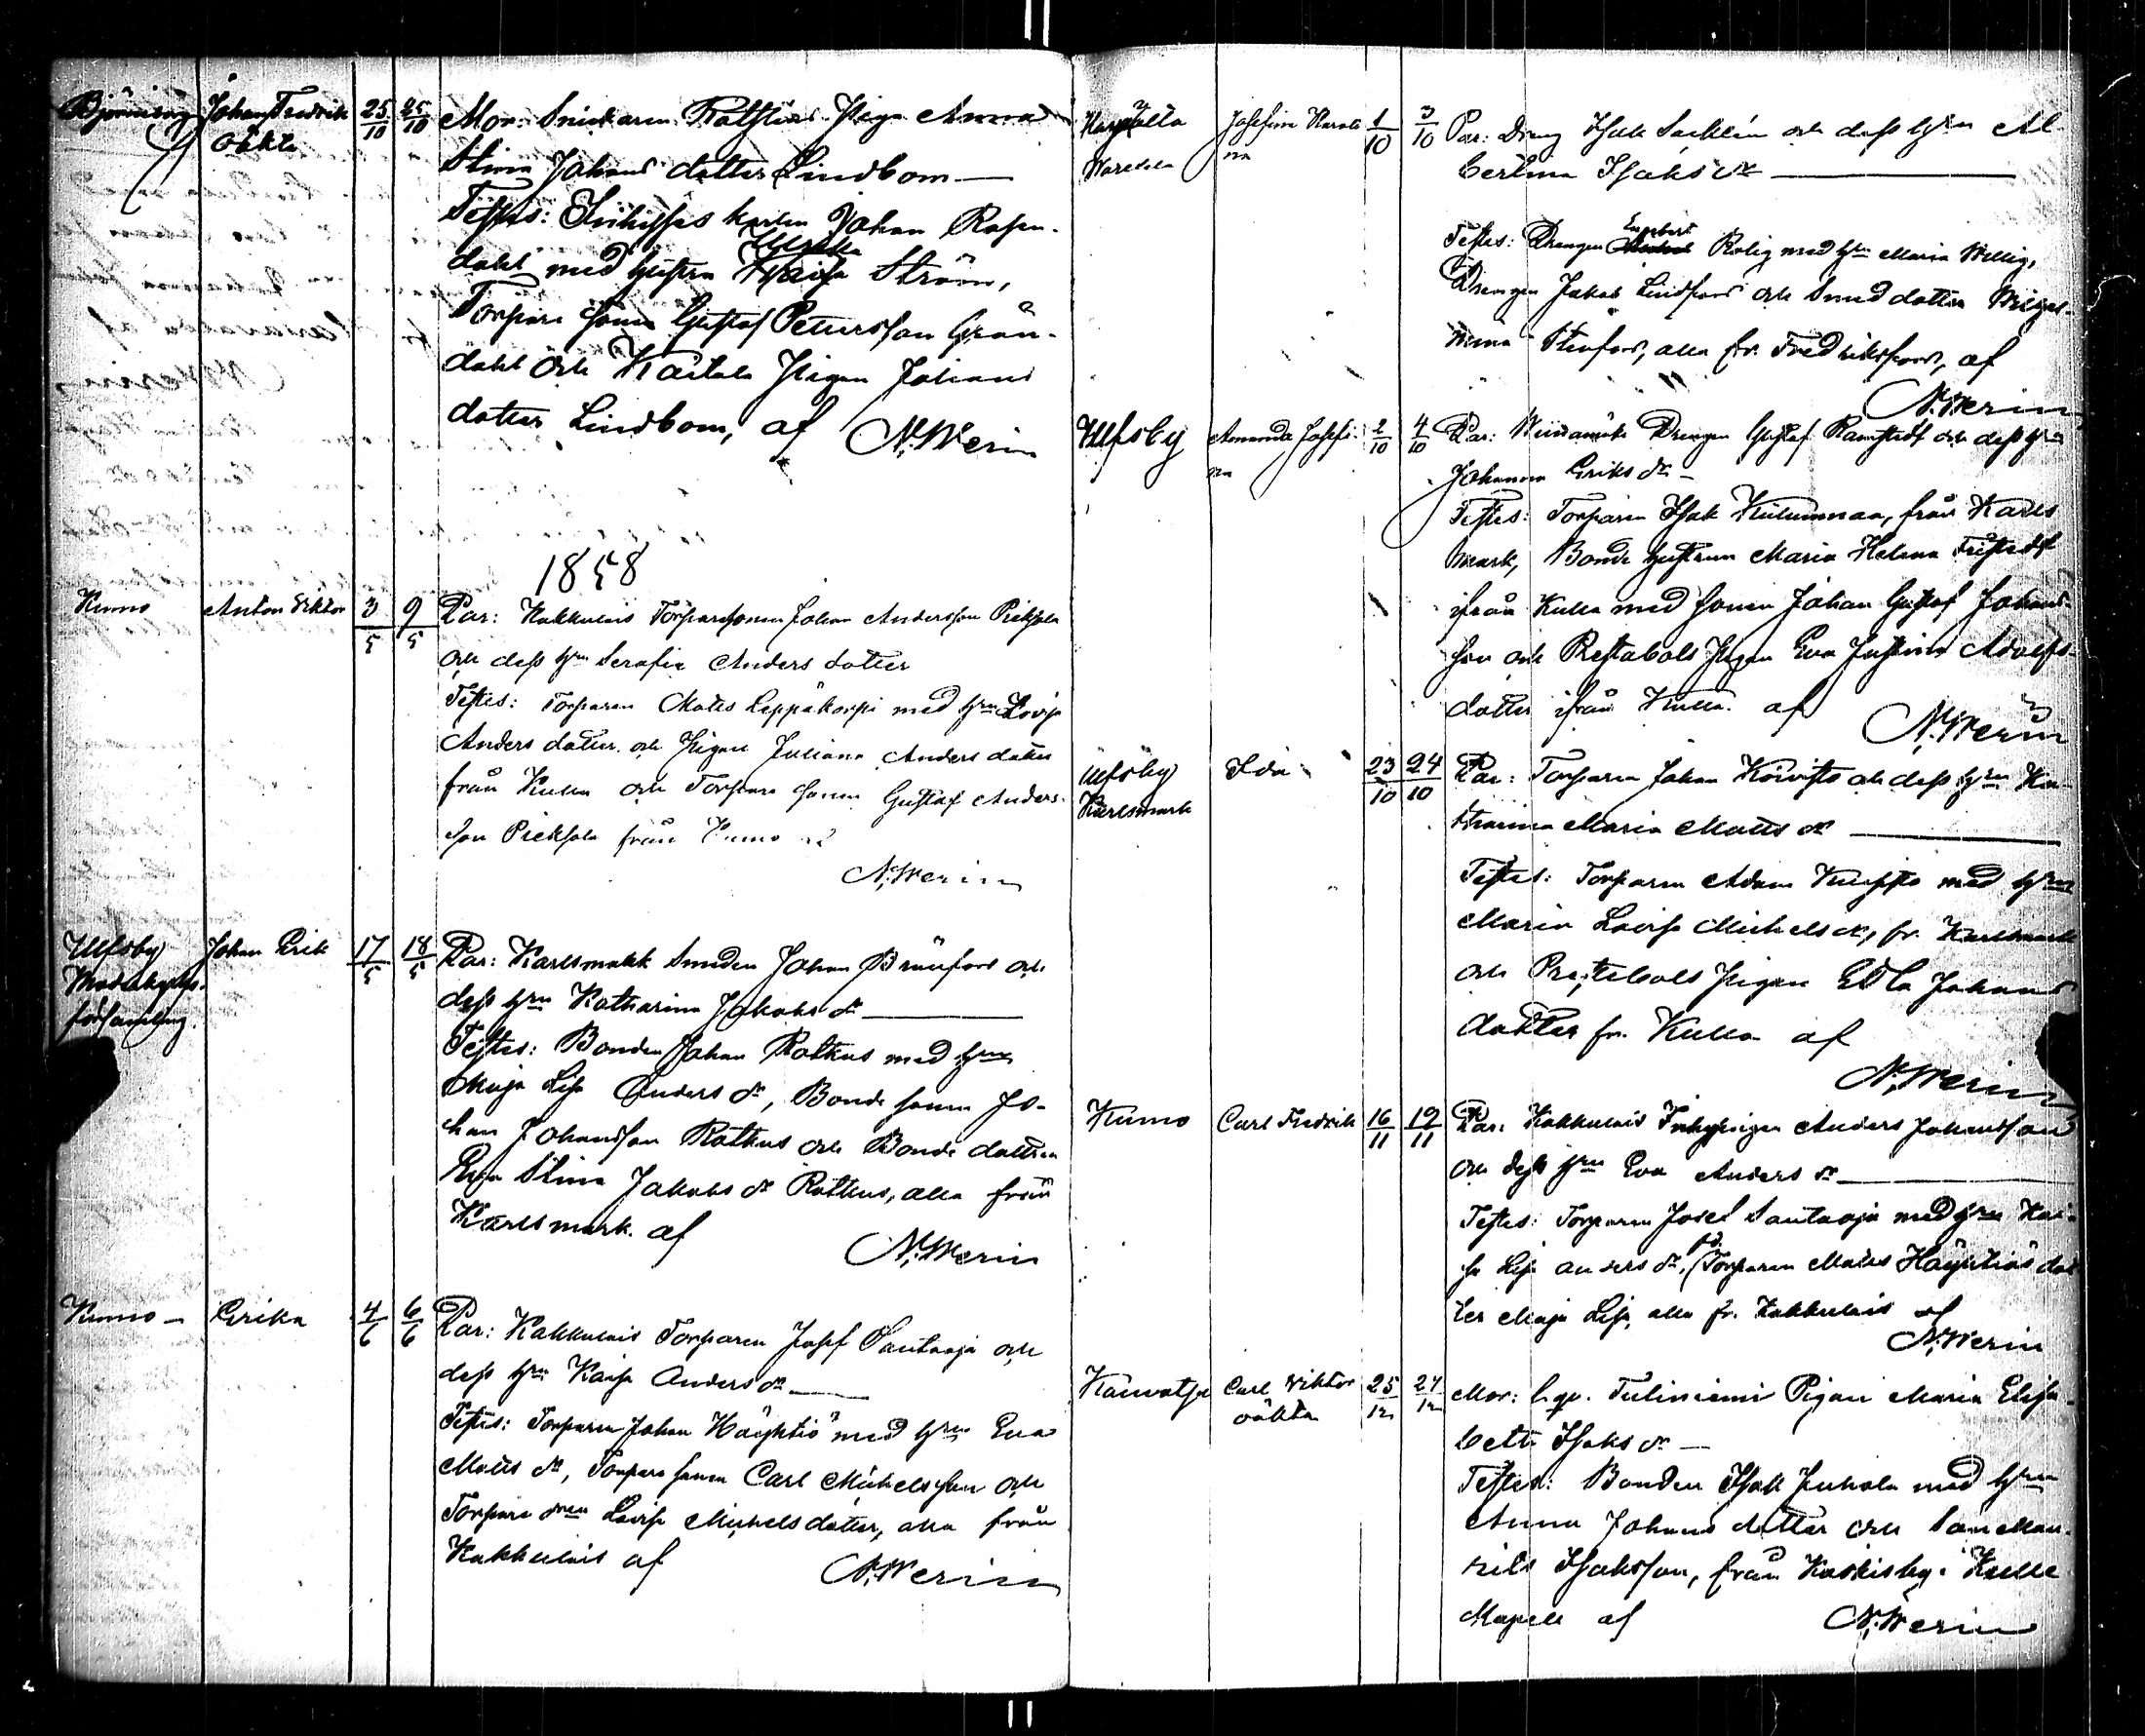 Björneborg Johan Fredrik 25/10 25/10 Mor: Snickaren Pigo Anna
oäkta
Stina Johans dotter Lindbom —
Testes: Inhysses karlen Johan Rosen-
dahl med hustru Ström,
Torpare sonen Gustaf Petersson Grön-
dahl och Pigan Johans
dotter Lindbom, af N. Werin
1858
Kumo Anton Viktor 3/5 9/5 Par: Kakkulais Torparesonen Johan Andersson
och dess hru Serafia Anders dotter
Testes: Torparen Matts Leppäkorpi med hru Lovisa
Anders dotter och Pigan Juliana Anders dotter
från Kulla och Torpare sonen Gustaf Anders-
son från Kumo
N. Werin
Ulfsby Johan Erik 17/5 18/5 Par: Karlsmark Smeden Johan Brunfors och
Moderkyrko-
församling.
dess hru Katharina Jakobs dr —
Testes: Bonden Johan Rotkus med hru
Maja Lisa Anders dr, Bonde sonen Jo-
han Johansson Rotkus och Bonde dottren
Eva Stina Jakobs dr Rotkus, alla från
Karlsmark. af
N. Werin
Kumo — Erika 4/6 6/6 Par: Kakkulais Torparen Josef Santaoja och
dess hru Kaisa Anders dr —
Testes: Torparen Johan Häyhtiö med hru Eva
Matts dr, Torpare sonen Carl Michelsson och
Torpare dren Lovisa Michels dotter, alla från
Kakkulais af
N. Werin
Josefina Karoli- 1/10 3/10 Par: Dreng Isak och dess hru Al-
na
bertina Isaks dr —
Testes: Drengen Engelbert Rolig med hru Maria Willig,
Drengen Jakob Lindfors och Smed dotter
Stenfors, alla fr. Fredriksfors, af
N. Werin
Ulfsby Amanda Josefi- 2/10 4/10 Par: Drengen Gustaf Ramstedt och dess hru
na
Johanna Eriks dr —
Testes: Torparen Isak från Karls
mark, Bonde hustrun Maria Helena
ifrån Kulla med sonen Johan Gustaf Johans-
son och Prestabols Pigan Eva Justina Adolfs-
dotter ifrån Kulla. af
N. Werin
Ulfsby Ida 23/10 24/10 Par: Torparen Johan Koivisto och dess hru Ka-
Karlsmark
thrina Maria Matts dr —
Testes: Torparen Adam med hru
Maria Lovisa Michels dr, fr. Karlsmark
och Prestebols Pigan Edla Johans
dotter fr. Kulla af
N. Werin
Kumo Carl Fredrik 16/11 19/11 Par: Kakkulais Inhysingen Anders Johansson
och dess hru Eva Anders dr —
Testes: Torparen Josef Santaoja med hru Kai-
sa Lisa Anders dr, Torparen Matts Häyhtiös dot
ter Maja Lisa, alla fr. Kakkulais af
N. Werin
Carl Viktor 25/12 27/12 Mor: Tuliniemi Pigan Maria Elisa-
oäkta
beth Isaks dr —
Testes: Bonden Isak Juhola med hru
Anna Johans dotter och
Isaksson, från i Kulla
Kapell af
N. Werin